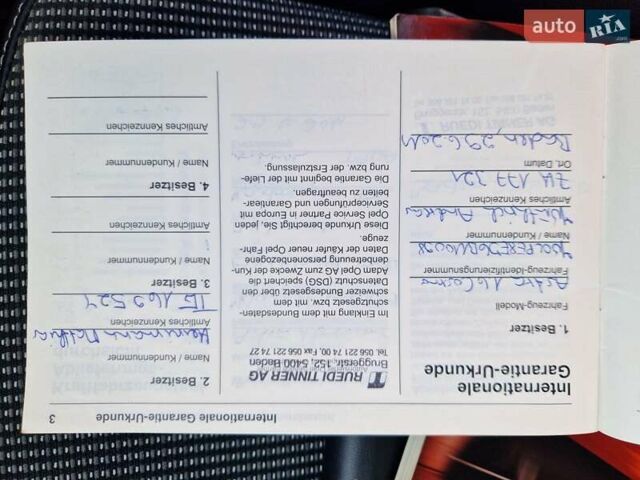 auto RIA.com
Internationale Garantie-Urkunde 3
Internationale
Garantie-Urkunde
1. Besitzer
Fahrzeug-Modell
Astra 1.6 Cosmo
Fahrzeug-Identifizierungsnummer
Name / Kundennummer
Amtliches Kennzeichen
ZH 177 321
Ort, Datum
Baden, 29.6.2011
RUEDI TINNER AG
Bruggerstr. 152, 5400 Baden
Tel. 056 221 74 00, Fax 056 221 74 27
Im Einklang mit dem Bundesdaten-
schutzgesetz bzw. mit dem
Schweizer Bundesgesetz über den
Datenschutz (DSG) speichert die
Adam Opel AG zum Zwecke der Kun-
denbetreuung personenbezogene
Daten der Käufer neuer Opel Fahr-
zeuge.
Diese Urkunde berechtigt Sie, jeden
Opel Service Partner in Europa mit
Serviceprüfungen und Garantiear-
beiten zu beauftragen.
Die Garantie beginnt mit der Liefe-
rung bzw. der Erstzulassung.
2. Besitzer
Name / Kundennummer
Amtliches Kennzeichen
3. Besitzer
Name / Kundennummer
Amtliches Kennzeichen
4. Besitzer
Name / Kundennummer
Amtliches Kennzeichen